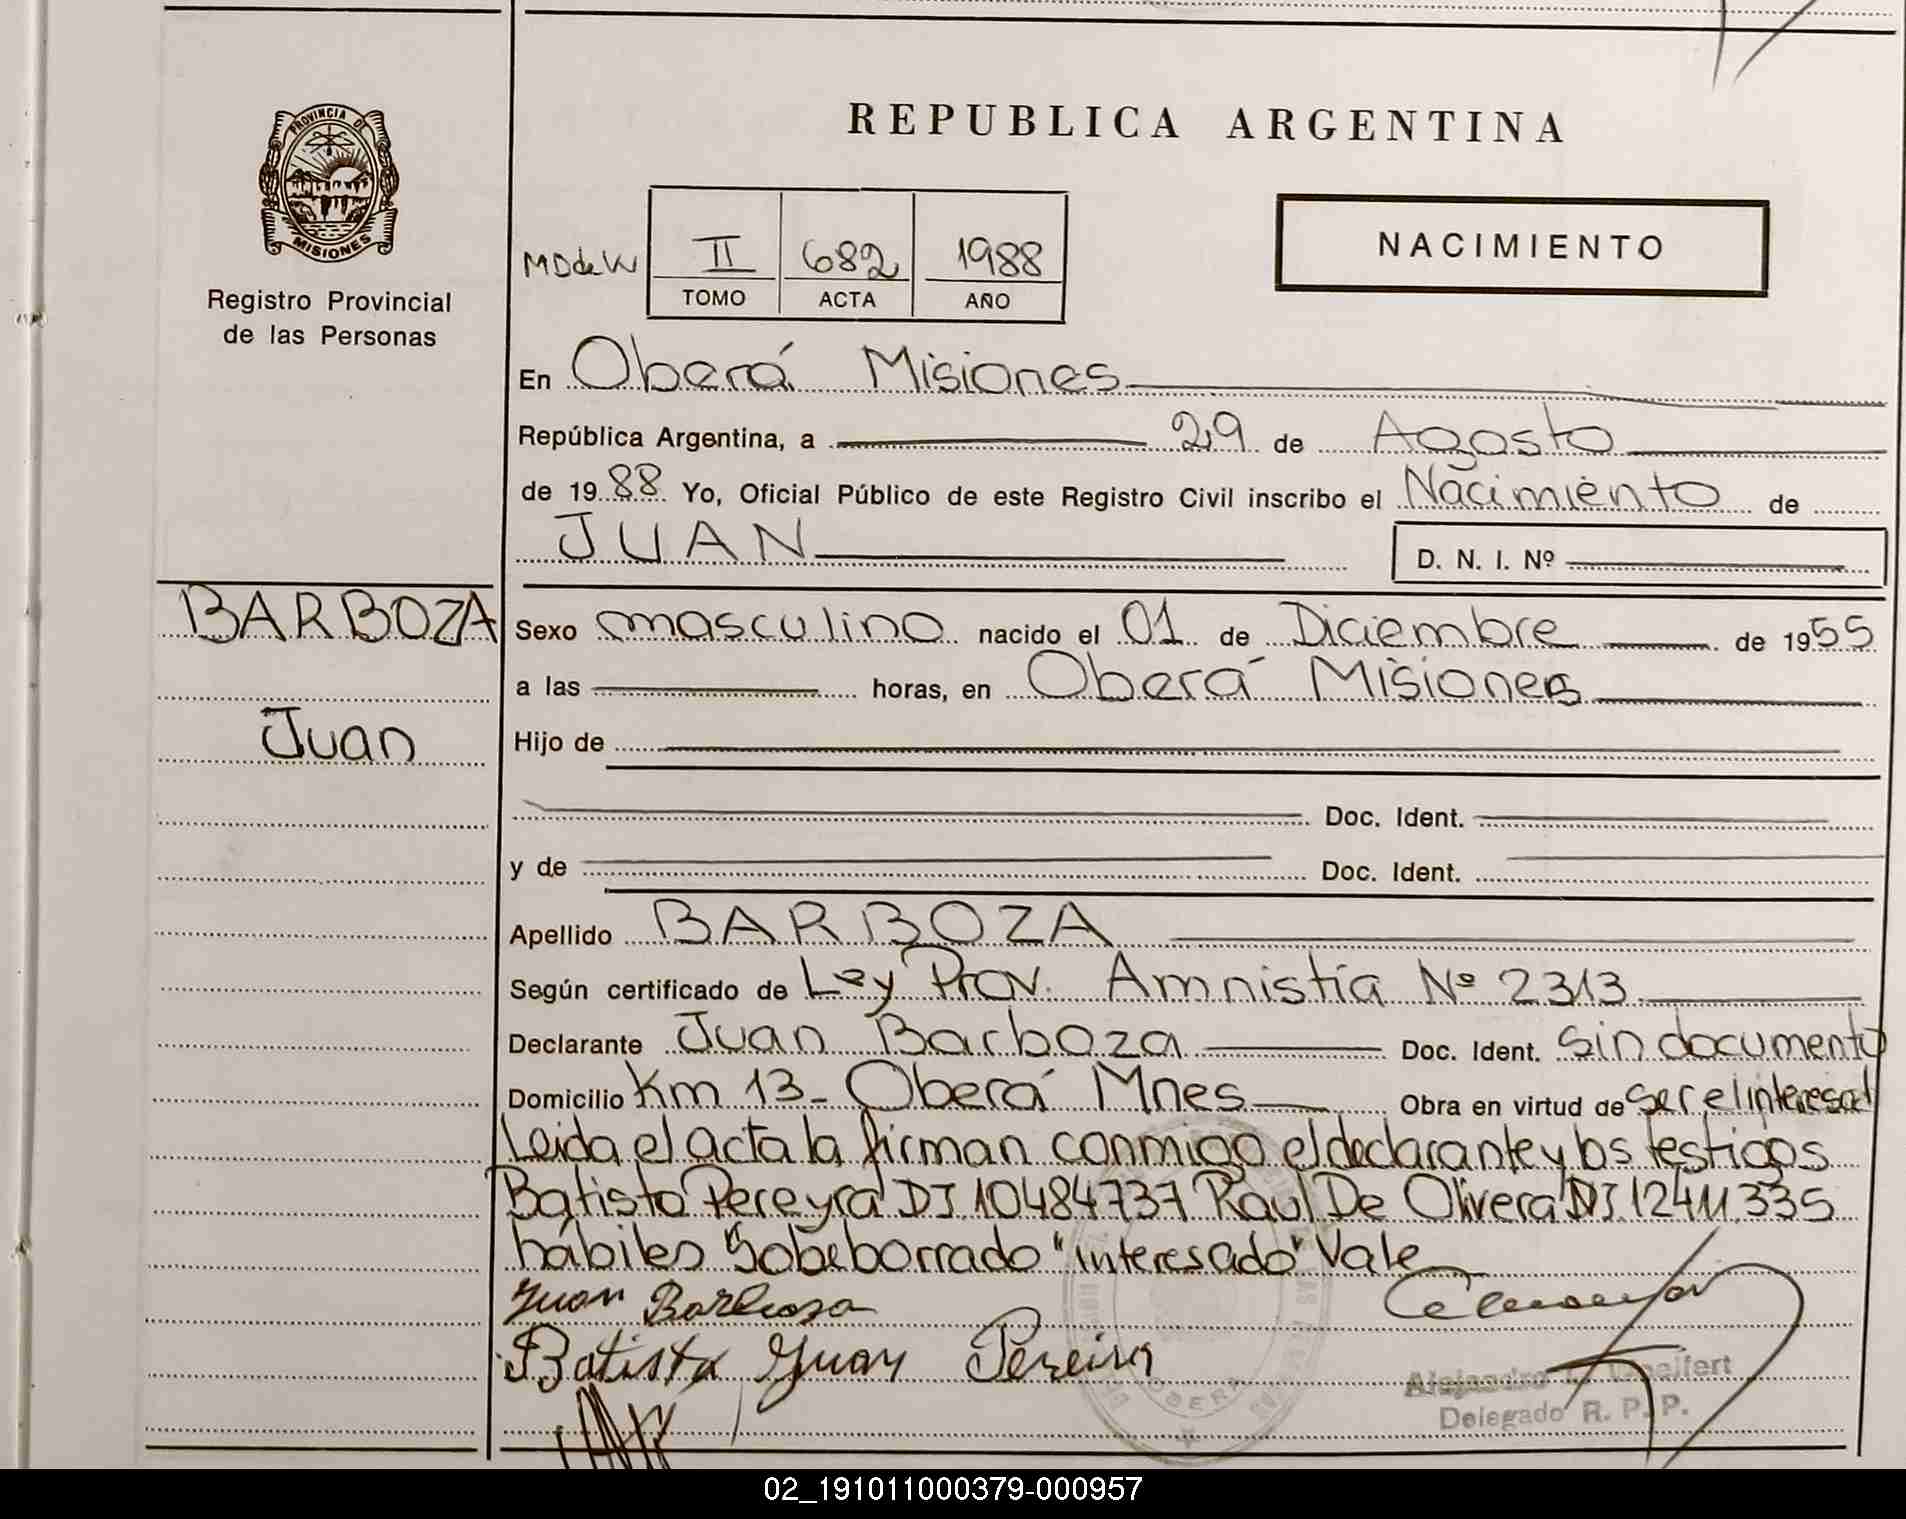 REPUBLICA ARGENTINA
PROVINCIA DE
MISIONES
Registro Provincial
de las Personas
MDdeW
II 682 1988
TOMO ACTA AÑO
NACIMIENTO
En Oberá Misiones
República Argentina, a 29 de Agosto
de 1988 Yo, Oficial Público de este Registro Civil inscribo el Nacimiento de
JUAN D. N. I. Nº
BARBOZA
Juan
Sexo masculino nacido el 01 de Diciembre de 1955
a las horas, en Oberá Misiones
Hijo de
Doc. Ident.
y de Doc. Ident.
Apellido BARBOZA
Según certificado de Ley Prov. Amnistía Nº 2313
Declarante Juan Barboza Doc. Ident. Sin documento
Domicilio Km 13- Oberá Mnes Obra en virtud de ser el interesad
Leida el acta la firman conmigo el declarante y los testigos
Batista Pereyra DI 10484737 Raul De Olivera DNI.12411.335
hábiles "Sobeborrado "interesado" Vale
Juan Barboza
Batista Juan Pereira
OBERA
Alejandro
Delegado R. P. P.
02_191011000379-000957